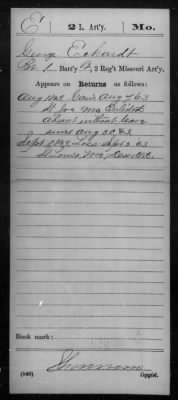 E 2 L. Art'y. Mo.
George Echardt
Co. 1 Batt'y B, 2 Reg't Missouri Art'y.
Appears on Returns as follows:
Aug 1863 Gain Aug 7 63
St Joe Mo Enlisted
absent without leave
since Aug 30 63.
Sept 1863 Loss Sept 63
St Louis, Mo Deserted.
Book mark:
(546) Copyist.